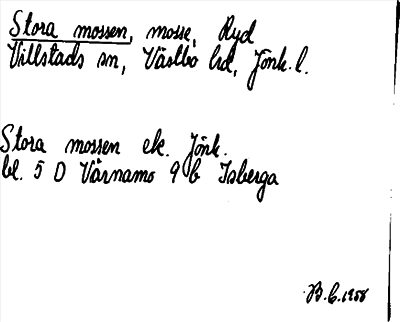 Stora mossen, mosse, Ryd
Villstads sn, Västbo hd, Jönk. l.
Stora mossen ek. Jönk.
bl. 5 D Värnamo 9 b Isberga
B. C. 1958